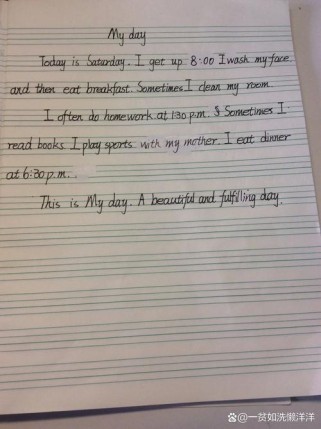 My day
Today is Saturday. I get up 8:00 I wash my face
and then eat breakfast. Sometimes I clean my room.
I often do homework at 1:30 p.m. Sometimes I
read books. I play sports with my mother. I eat dinner
at 6:30 p.m..
This is My day. A beautiful and fulfilling day.
@一贫如洗懒洋洋